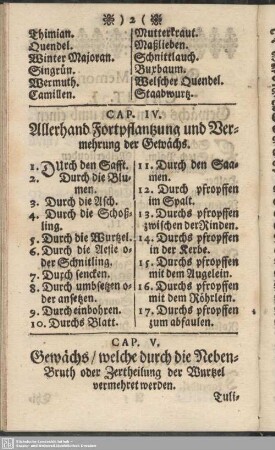 )2(
Thimian.
Quendel.
Winter Majoran.
Singrün.
Wermuth.
Camillen.
Mutterkraut.
Maßlieben.
Schnittlauch.
Buxbaum.
Welscher Quendel.
Staadwurtz.
CAP. IV.
Allerhand Fortpflantzung und Ver-
mehrung der Gewächs.
1. Durch den Safft.
2. Durch die Blu-
men.
3. Durch die Asch.
4. Durch die Schoß-
ling.
5. Durch die Wurtzel.
6. Durch die Aestе o-
der Schnitling.
7. Durch sencken.
8. Durch umbsetzen o-
der ansetzen.
9. Durch einbohren.
10. Durchs Blatt.
11. Durch den Saa-
men.
12. Durch pfropffen
im Spalt.
13. Durchs pfropffen
zwischen der Rinden.
14. Durchs pfropffen
in der Kerbe.
15. Durchs pfropffen
mit dem Augelein.
16. Durchs pfropffen
mit dem Röhrlein.
17. Durchs pfropffen
zum abfaulen.
CAP. V.
Gewächs / welche durch die Neben-
Bruth oder Zertheilung der Wurtzel
vermehret werden.
Tuli-